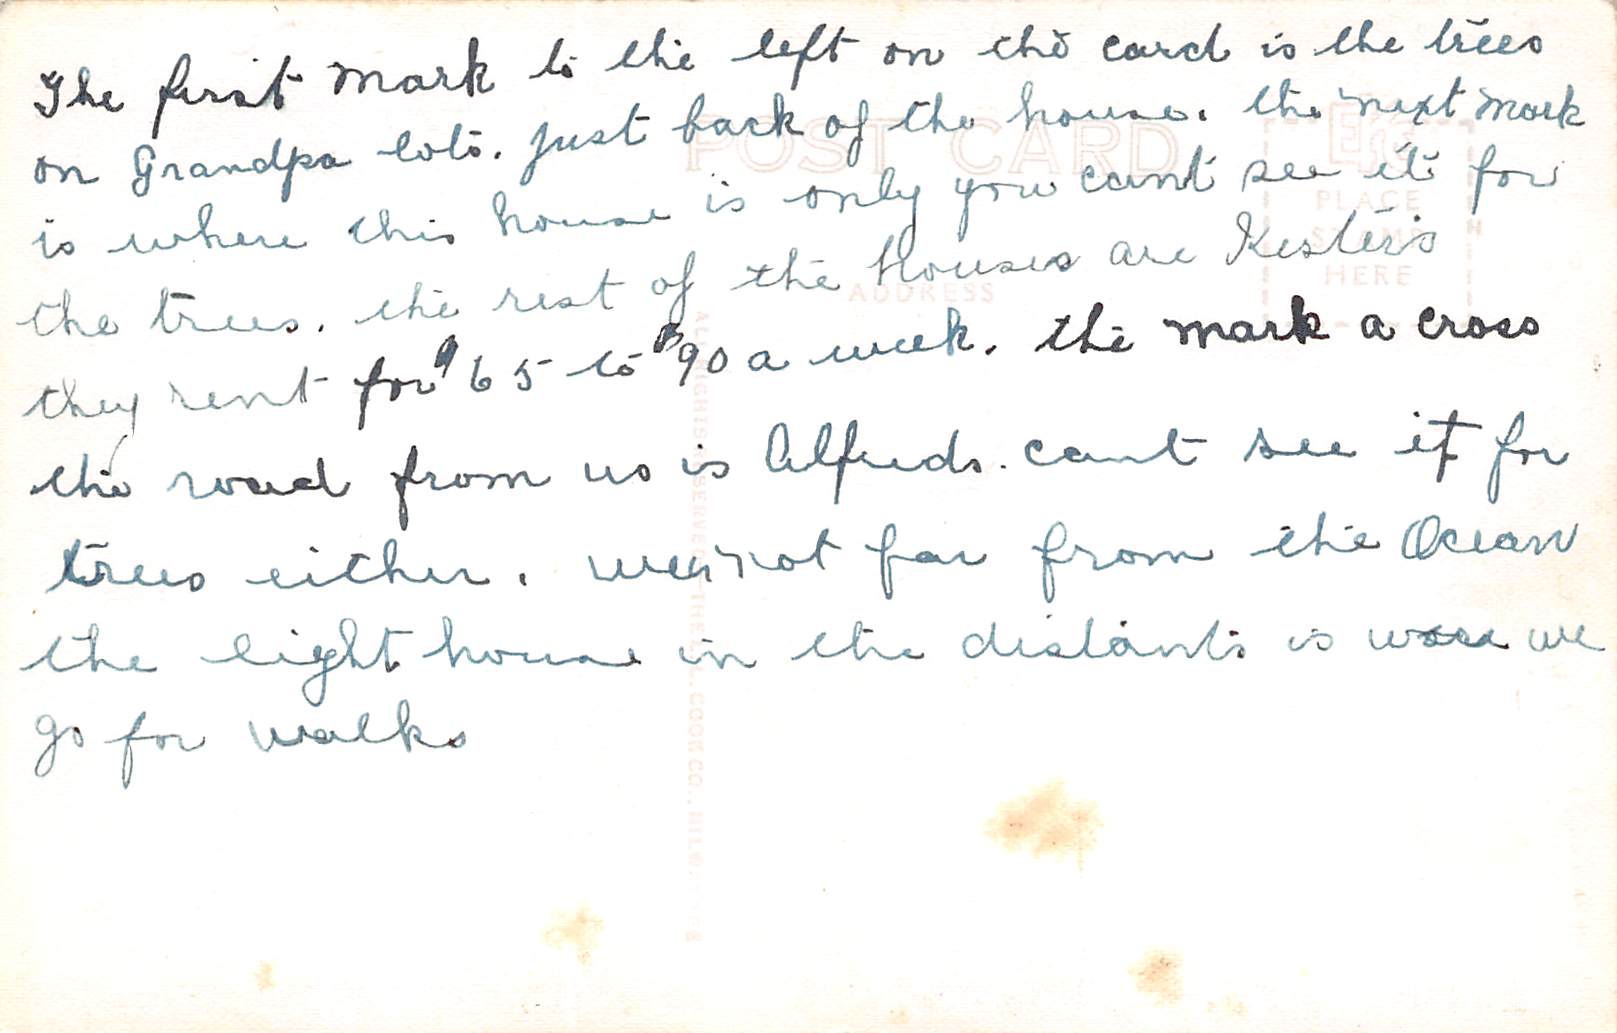 The first mark to the left on the card is the trees
on Grandpa lots. just back of the house. the next mark
is where this house is only you cant see it for
the trees. the rest of the houses are Kester's
they rent for $65 to $90 a week. the mark a cross
the road from us is Alfreds. cant see it for
trees either. not far from the Ocean
the light house in the distants is we
go for walks
POST CARD
PLACE
STAMP
HERE
ADDRESS
ALL RIGHTS RESERVED THE L.L. COOK CO., MILW